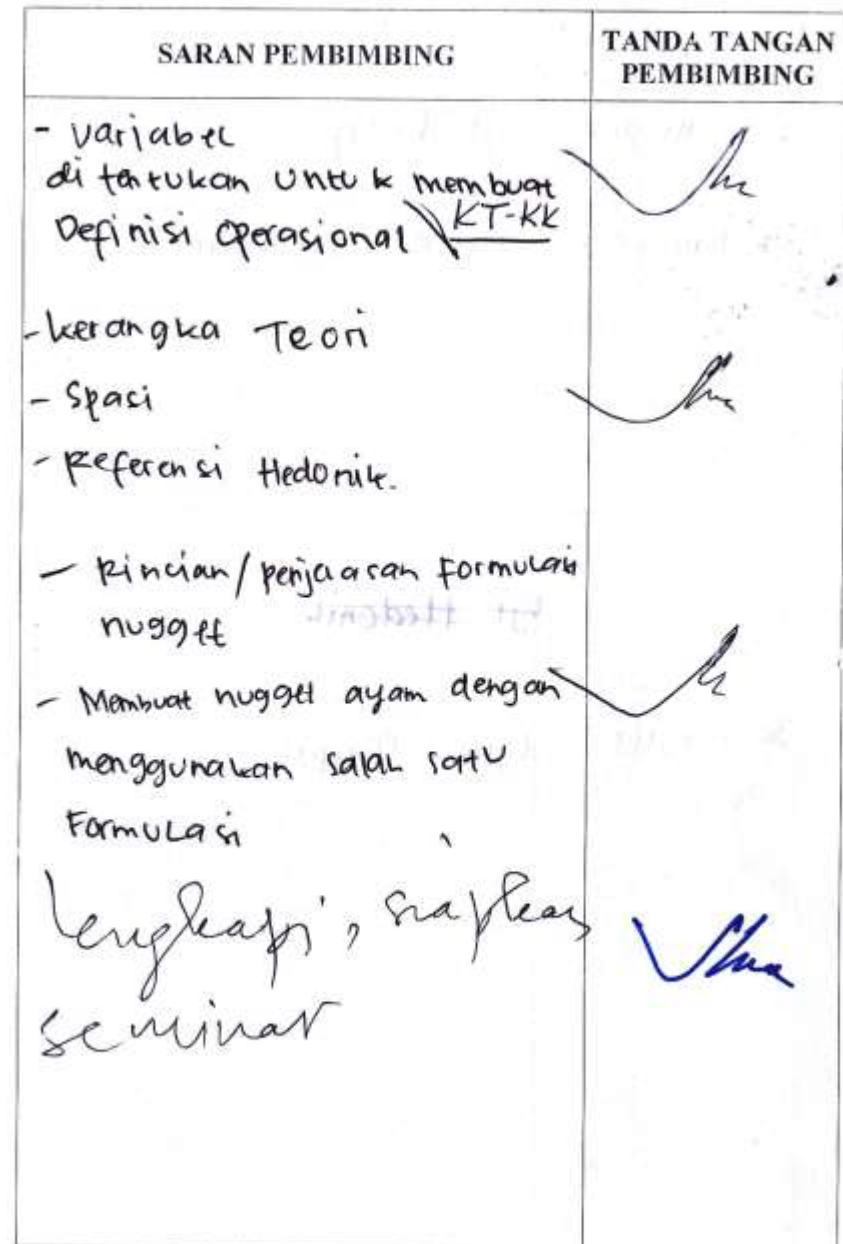 SARAN PEMBIMBING
TANDA TANGAN
PEMBIMBING
- Variabel
di tentukan untuk membuat
Definisi Operasional KT-KK
- kerangka Teori
- Spasi
- Referensi Hedonik.
- Rincian/penjaasan Formulasi
nugget
- Membuat nugget ayam dengan
menggunakan salah satu
Formulasi
lengkapi, siapkan
seminar